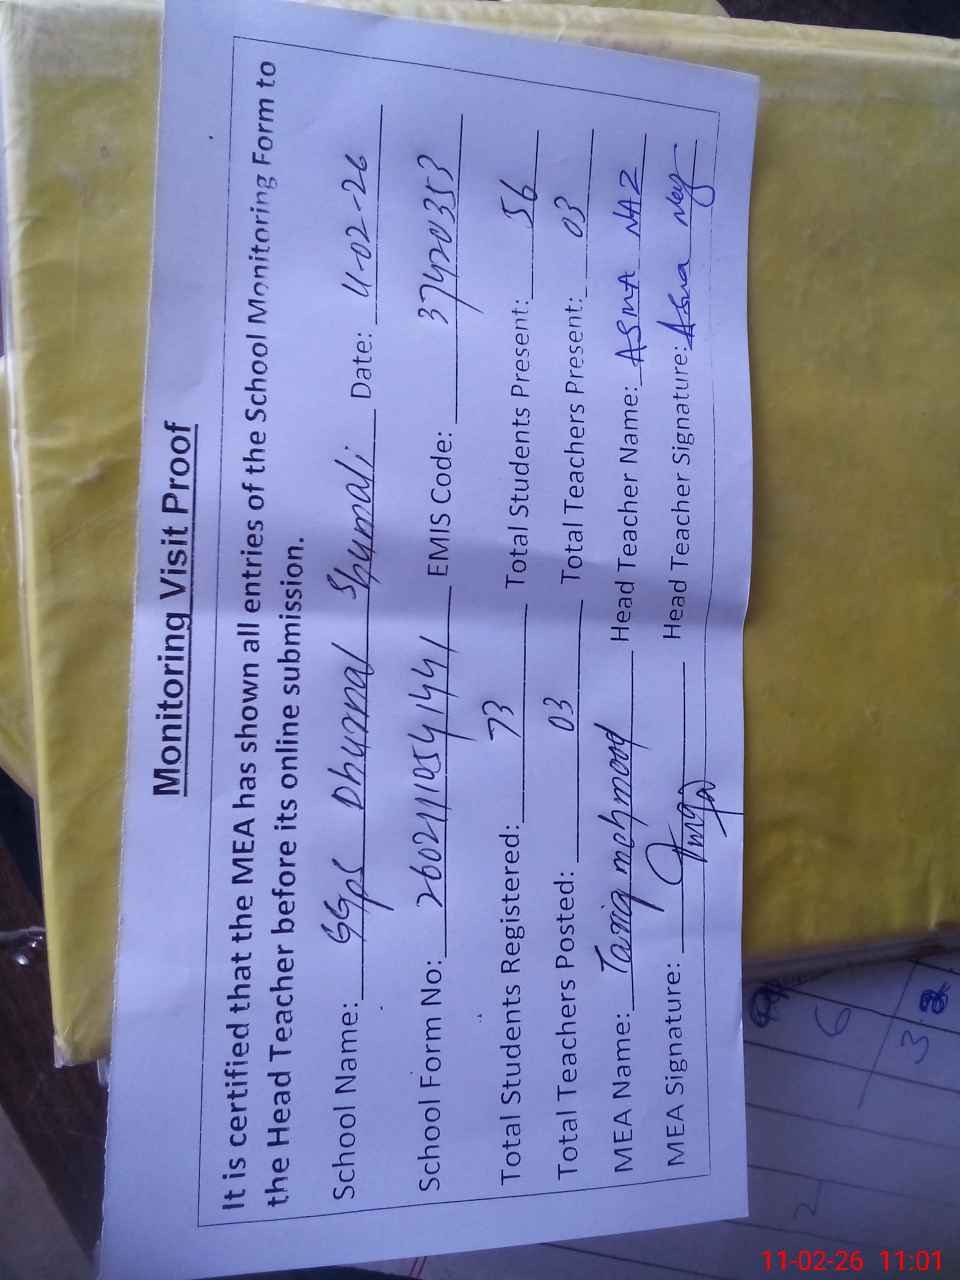 Monitoring Visit Proof
It is certified that the MEA has shown all entries of the School Monitoring Form to
the Head Teacher before its online submission.
School Name: GGPS Dhurnal Shumali Date: 11-02-26
School Form No: 26021110541441 EMIS Code: 37420353
Total Students Registered: 73 Total Students Present: 56
Total Teachers Posted: 03 Total Teachers Present: 03
MEA Name: Tariq mehmood Head Teacher Name: ASMA NAZ
MEA Signature: Head Teacher Signature: Asma Naz
6
3
2
11-02-26 11:01